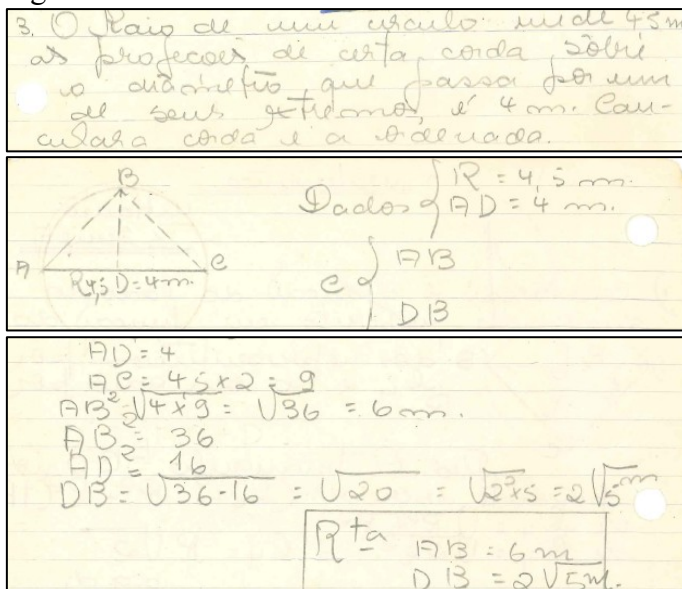 3. O Raio de um circulo mede 45 m
as projecoes de certa corda sôbre
o diâmetro, que passa por um
de seus extremos, é 4 m. Cal-
cular a corda e a ordenada.
B
A
C
R4,5 D=4m.
Dados { R = 4,5 m.
AD = 4 m.
C { AB
DB
AD = 4
AC = 45 x 2 = 9
AB² = √4x9 = √36 = 6 m.
AB² = 36
AD² = 16
DB = √36-16 = √20 = √2²x5 = 2√5 m
Rta
AB = 6 m
DB = 2√5m.